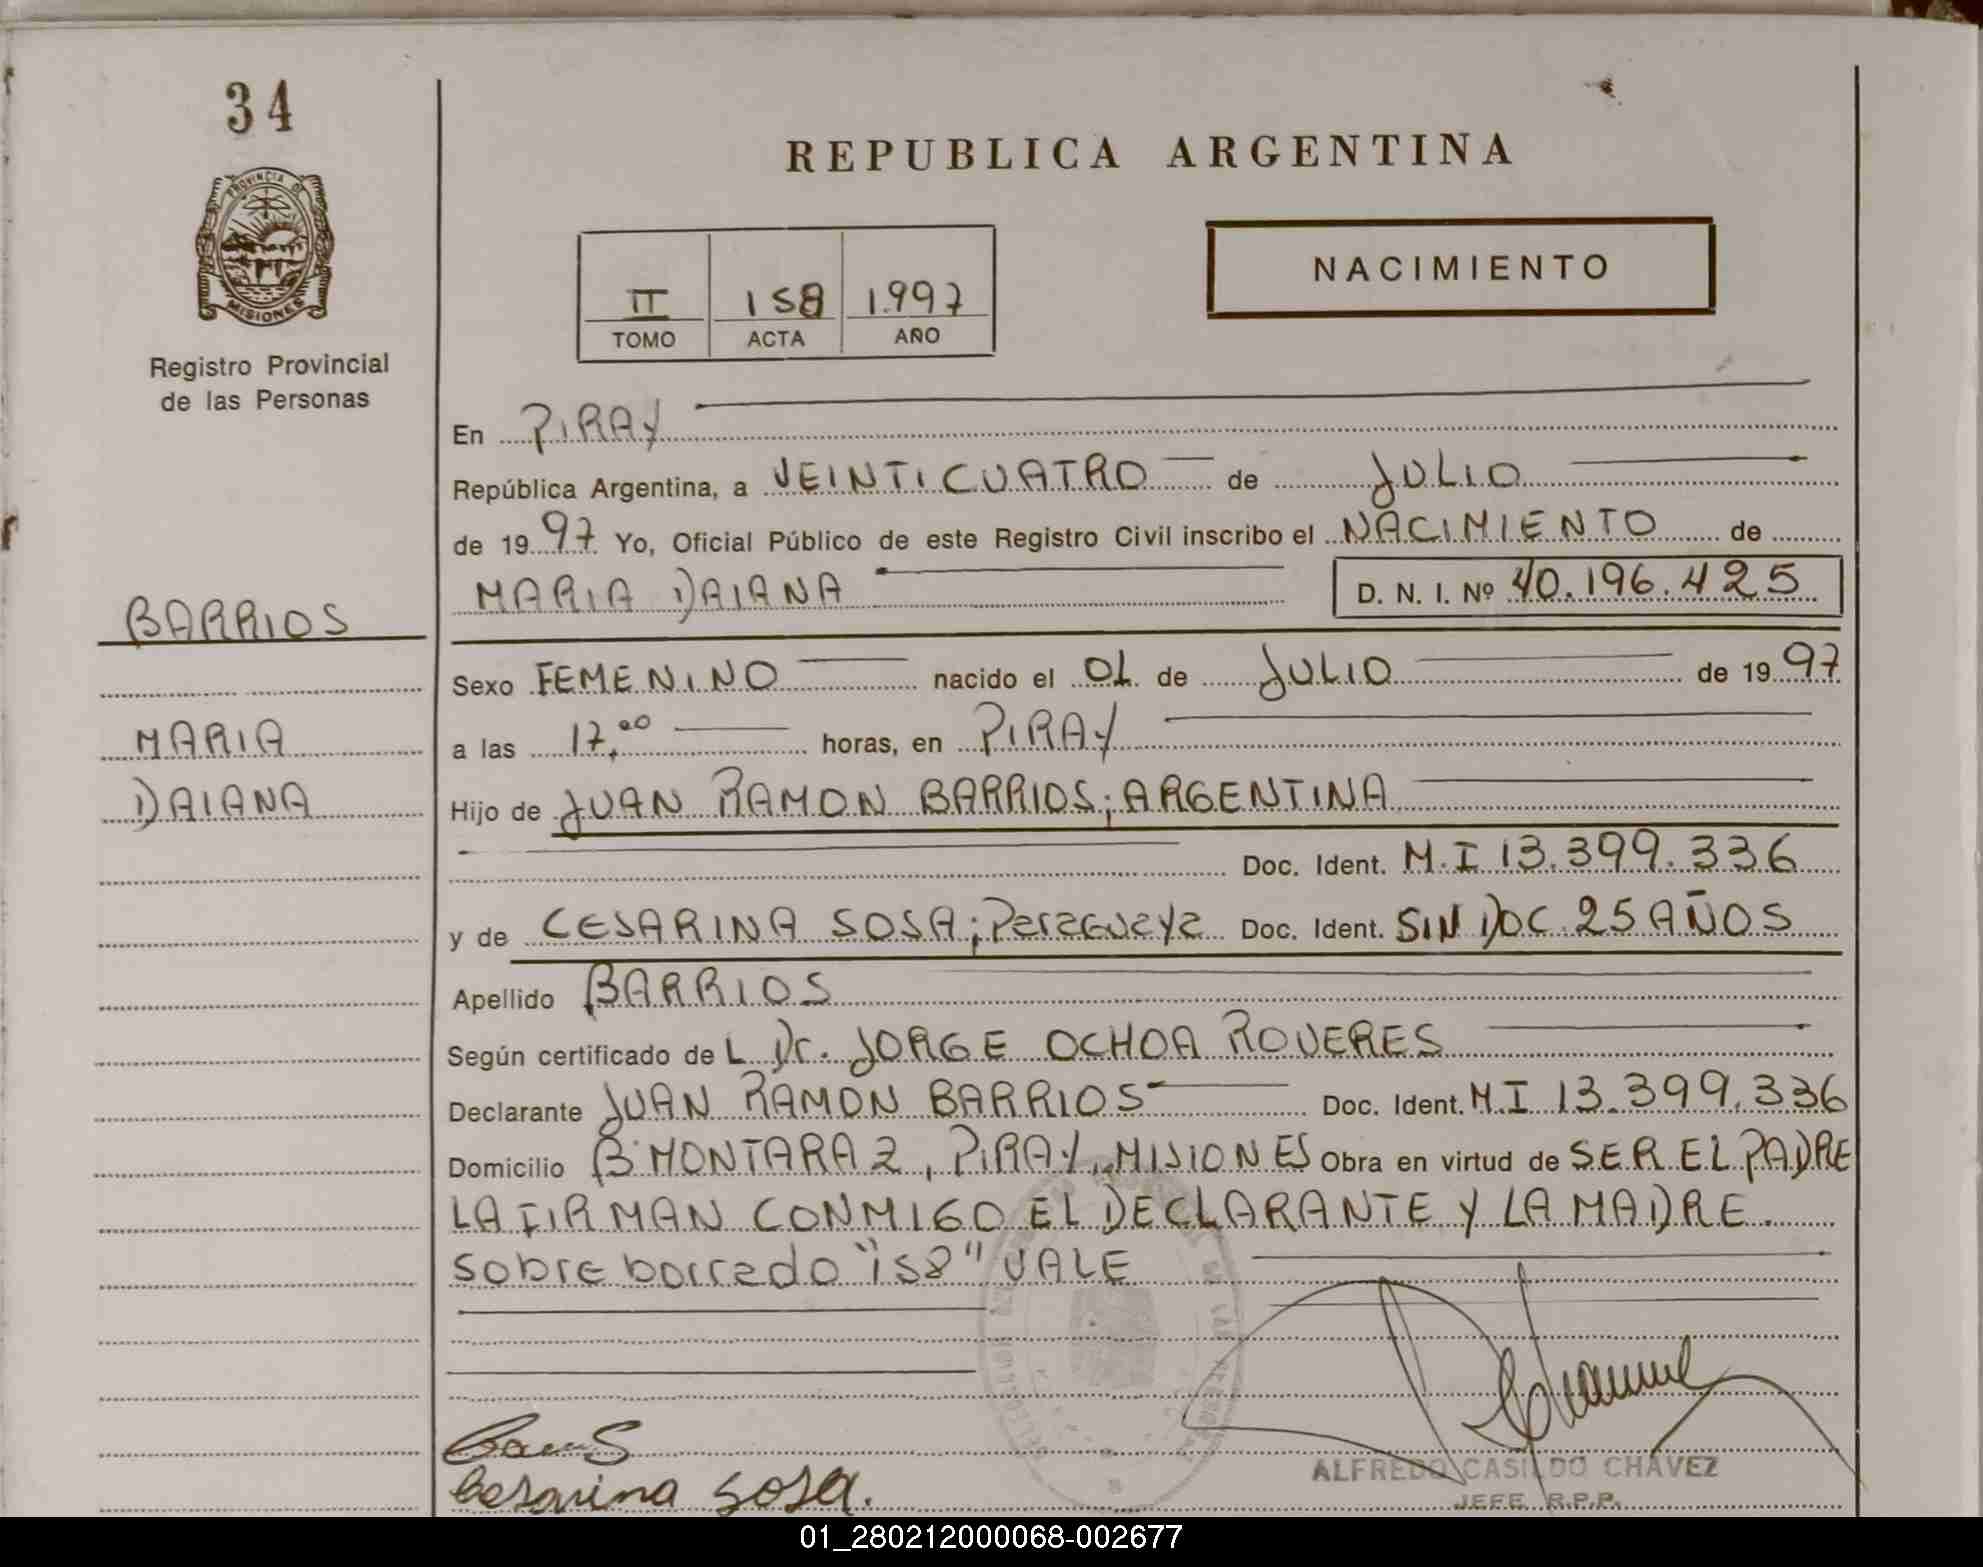 34
PROVINCIA DE
MISIONES
Registro Provincial
de las Personas
BARRIOS
MARIA
DAIANA
REPUBLICA ARGENTINA
II 158 1.997
TOMO ACTA AÑO
NACIMIENTO
En PIRAY
República Argentina, a VEINTICUATRO de JULIO
de 1997 Yo, Oficial Público de este Registro Civil inscribo el NACIMIENTO de
MARIA DAIANA D. N. I. Nº 40.196.425
Sexo FEMENINO nacido el 01 de JULIO de 1997
a las 17,00 horas, en PIRAY
Hijo de JUAN RAMON BARRIOS; ARGENTINA
Doc. Ident. M.I 13.399.336
y de CESARINA SOSA; Paraguaya Doc. Ident. SIN DOC 25 AÑOS
Apellido BARRIOS
Según certificado de L Dr. JORGE OCHOA ROVERES
Declarante JUAN RAMON BARRIOS Doc. Ident. M.I 13.399.336
Domicilio Bº MONTARAZ, PIRAY, MISIONES Obra en virtud de SER EL PADRE
LA FIRMAN CONMIGO EL DECLARANTE Y LA MADRE.
sobre borrado "158" VALE
Cesarina Sosa.
ALFREDO CASILDO CHAVEZ
JEFE R.P.P.
01_280212000068-002677